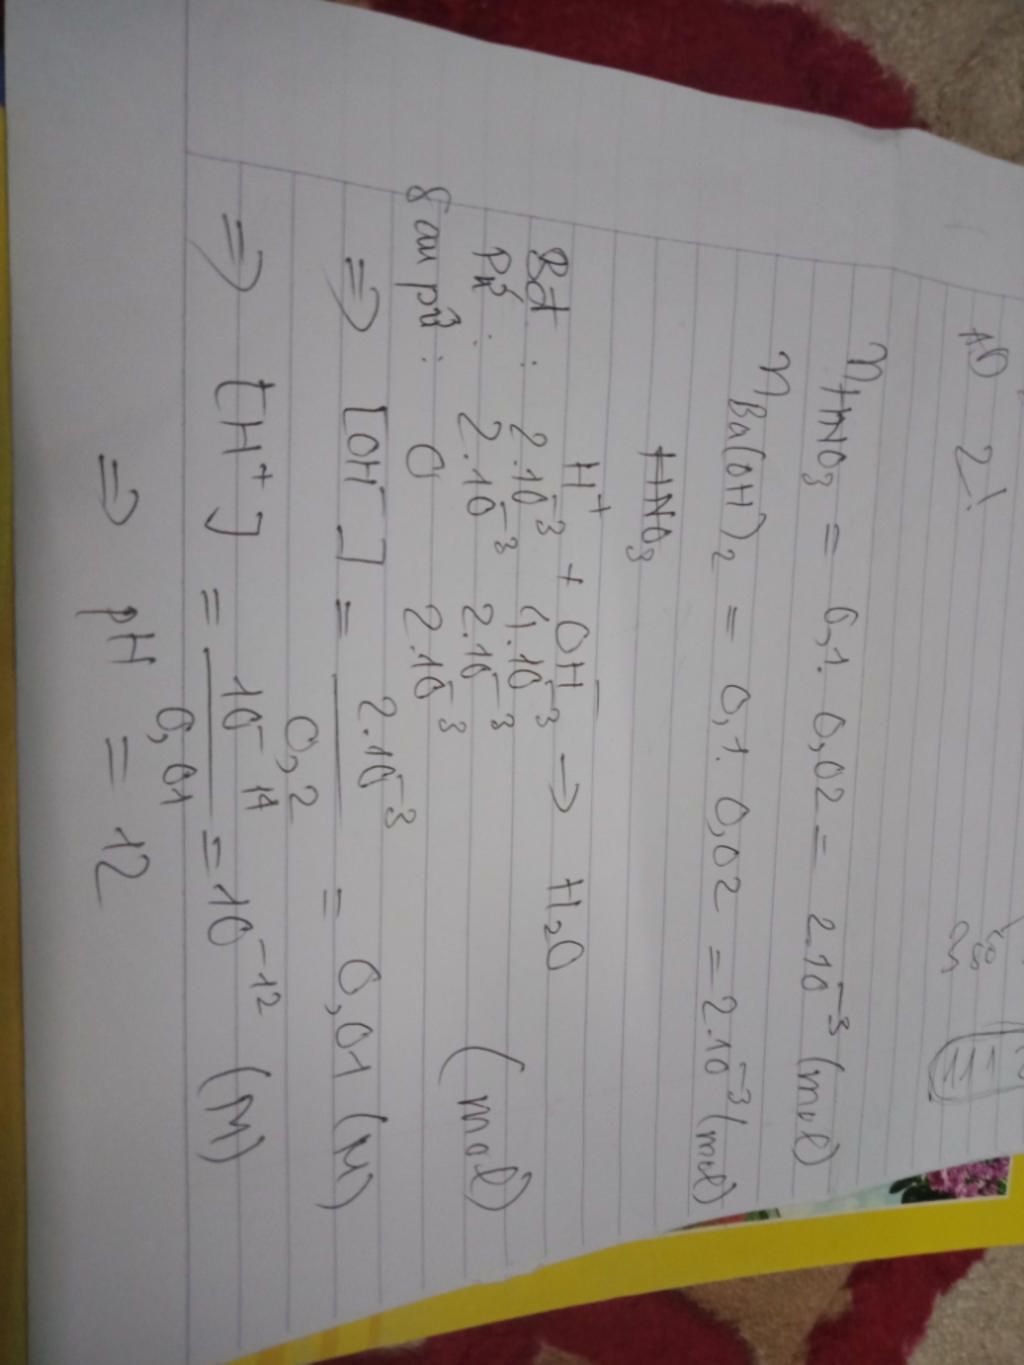 AD 2:
nHNO₃ = 0,1. 0,02 = 2.10⁻³ (mol)
nBa(OH)₂ = 0,1. 0,02 = 2.10⁻³ (mol)
HNO₃
H⁺ + OH⁻ → H₂O
Bđ : 2.10⁻³ 4.10⁻³
Pứ : 2.10⁻³ 2.10⁻³ (mol)
Sau pứ : 0 2.10⁻³
⇒ [OH⁻] = 2.10⁻³ / 0,2 = 0,01 (M)
⇒ [H⁺] = 10⁻¹⁴ / 0,01 = 10⁻¹² (M)
⇒ pH = 12